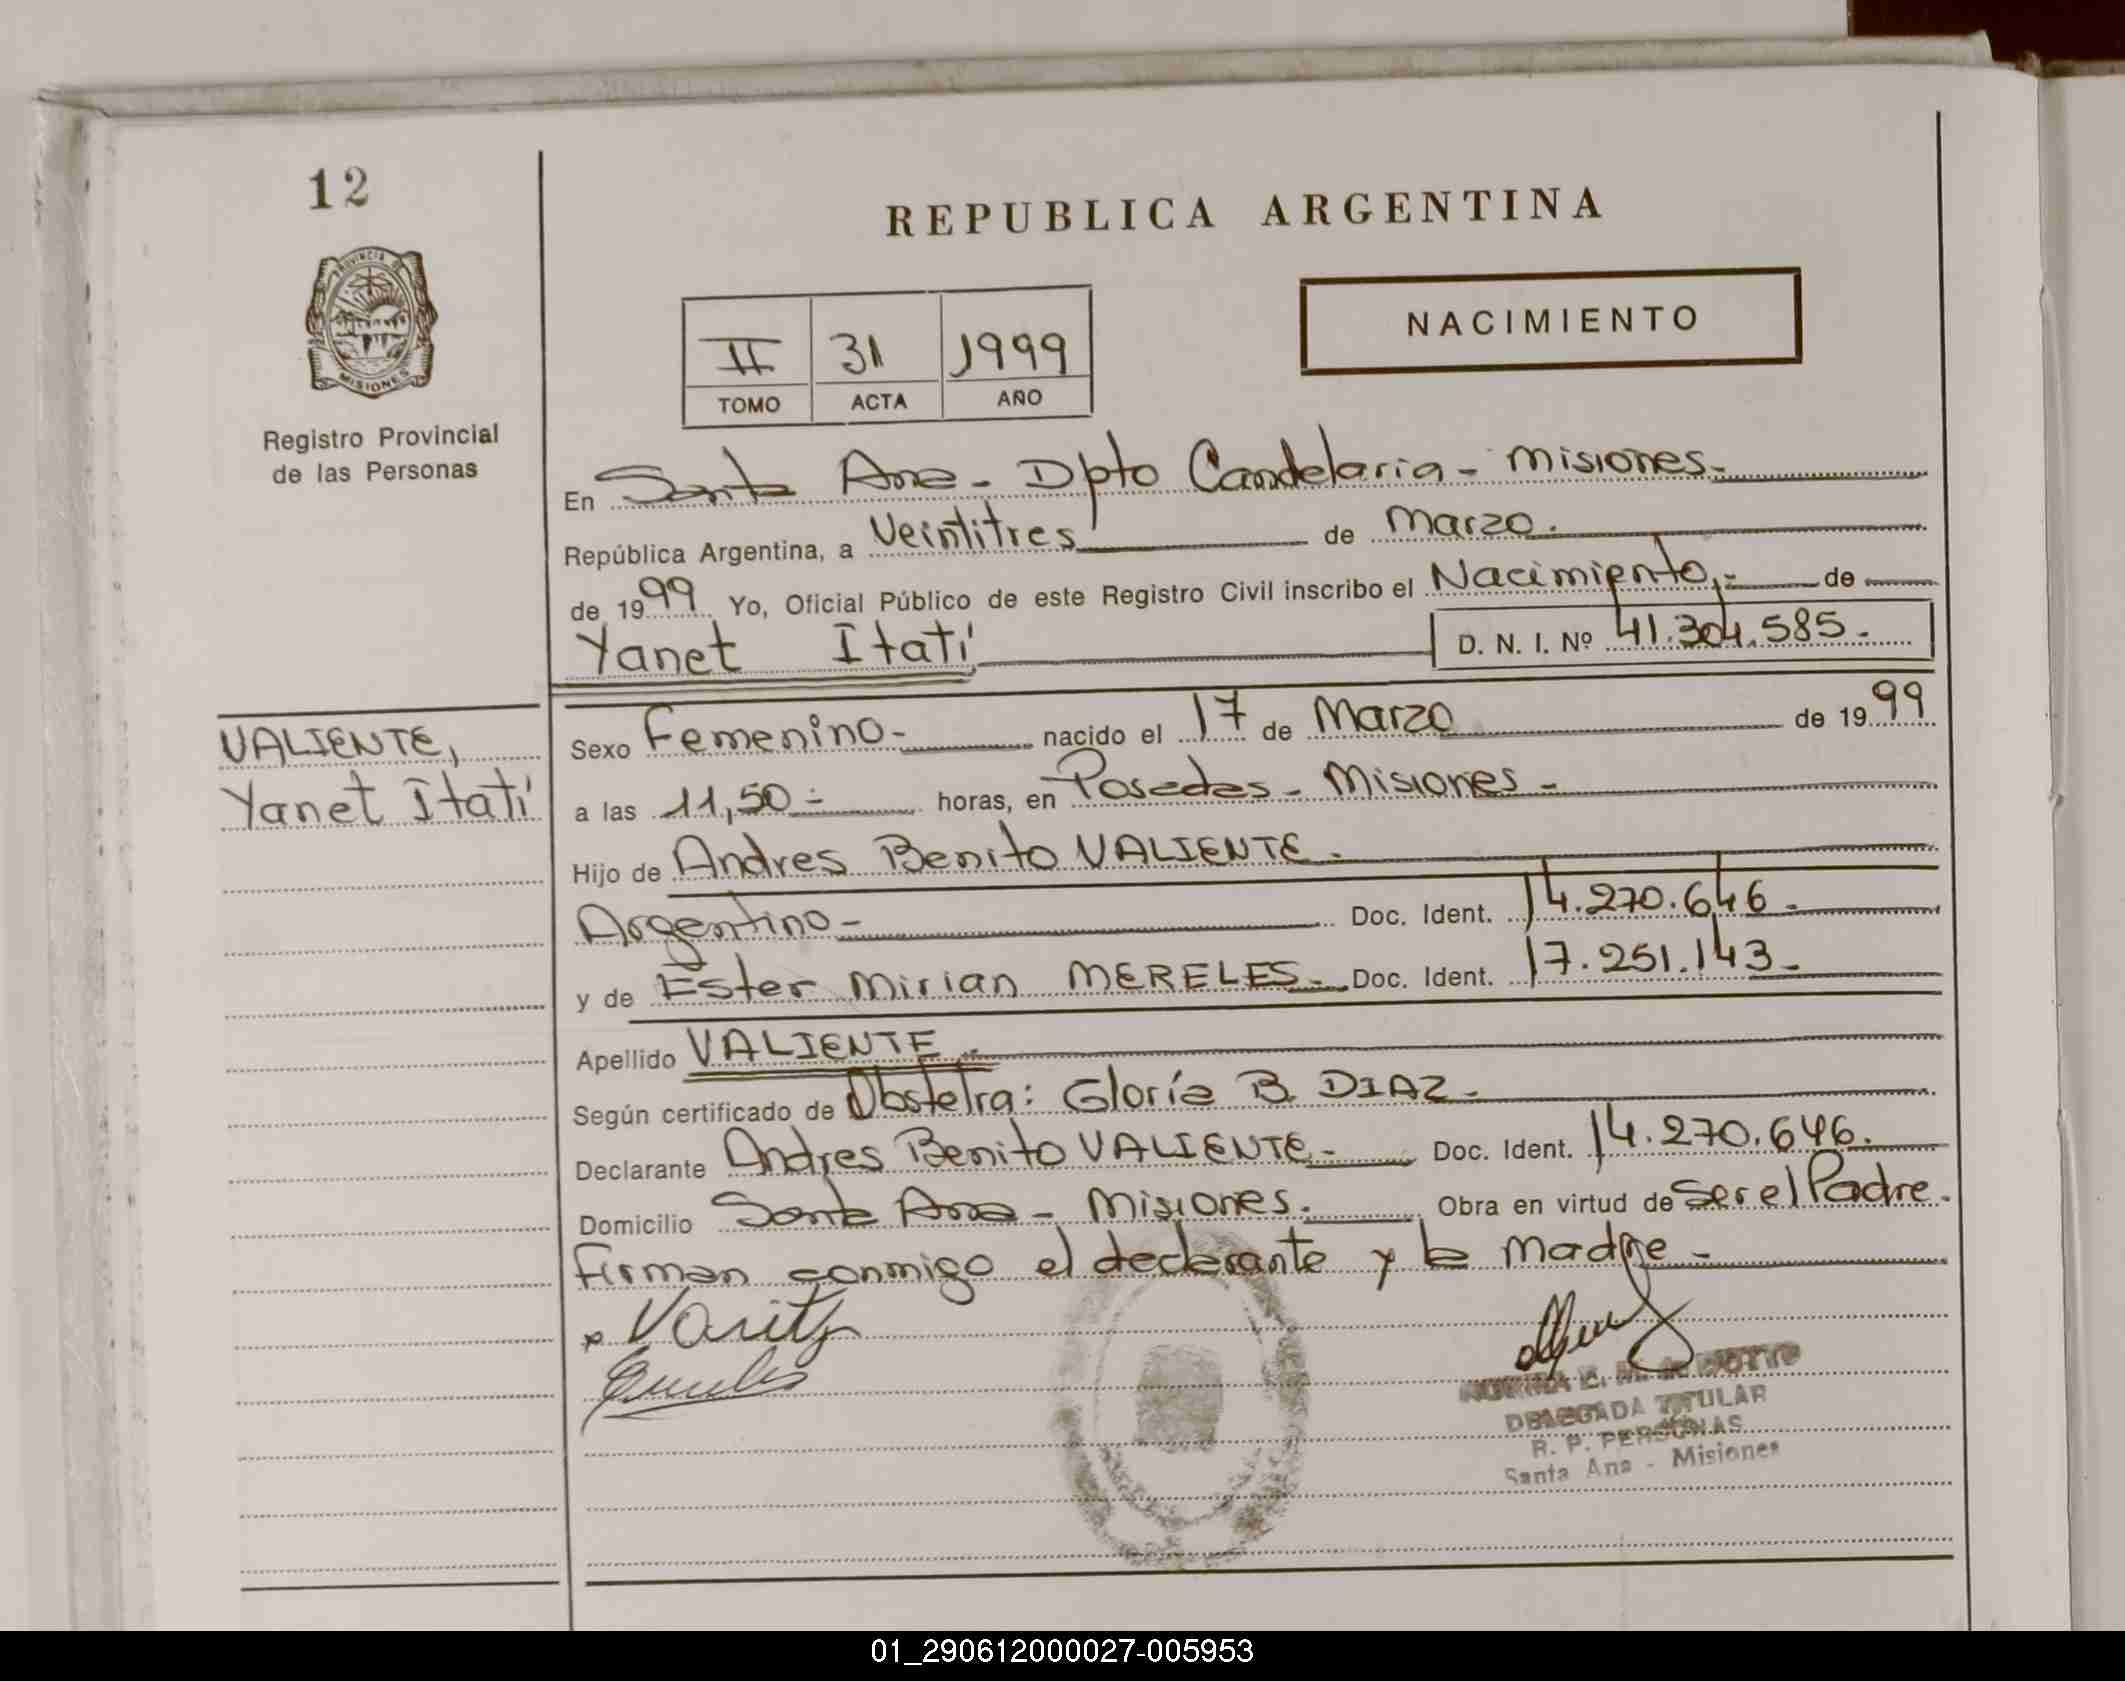 12
REPUBLICA ARGENTINA
PROVINCIA DE
MISIONES
NACIMIENTO
II 31 1999
TOMO ACTA AÑO
Registro Provincial
de las Personas
En Santa Ana - Dpto Candelaria - Misiones.
República Argentina, a Veintitres de Marzo.
de 1999 Yo, Oficial Público de este Registro Civil inscribo el Nacimiento,- de
Yanet Itatí D. N. I. Nº 41.304.585.
VALIENTE,
Yanet Itatí
Sexo Femenino- nacido el 17 de Marzo de 1999
a las 11,50- horas, en Posadas - Misiones -
Hijo de Andres Benito VALIENTE.
Argentino - Doc. Ident. 14.270.646-
y de Ester Mirian MERELES- Doc. Ident. 17.251.143-
Apellido VALIENTE.
Según certificado de Obstetra: Gloria B. DIAZ-
Declarante Andres Benito VALIENTE- Doc. Ident. 14.270.646.
Domicilio Santa Ana - Misiones. Obra en virtud de Ser el Padre.
Firman conmigo el declarante y la Madre -
DELEGADA TITULAR
R. P. PERSONAS
Santa Ana - Misiones
01_290612000027-005953